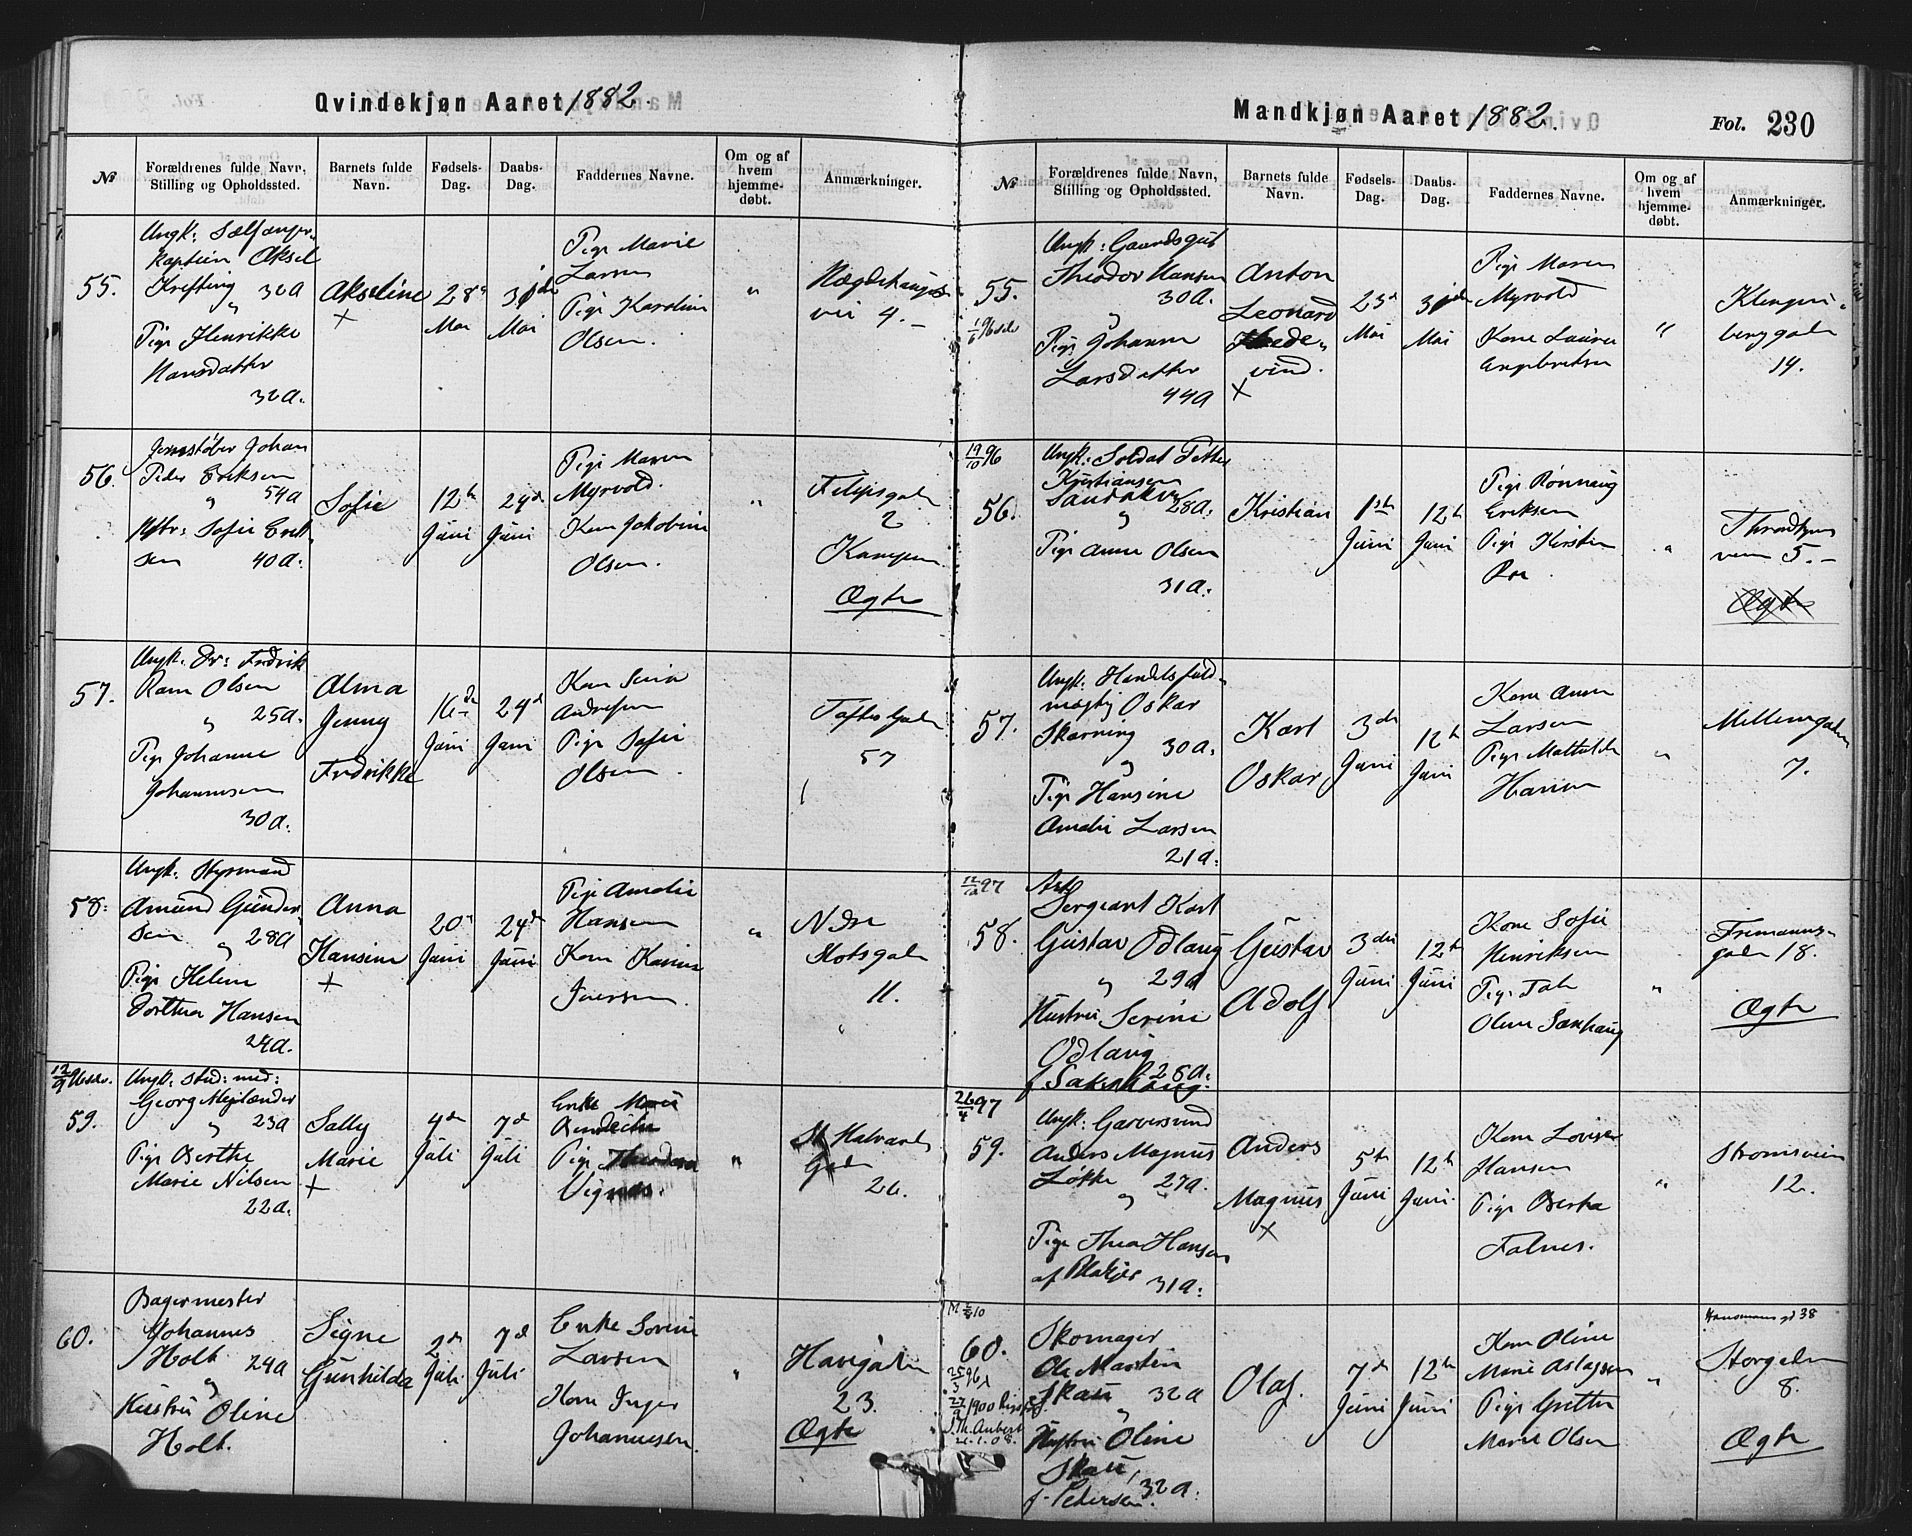 Qvindekjøn Aaret 1882.
№
Forældrenes fulde Navn,
Stilling og Opholdssted.
Barnets fulde
Navn.
Fødsels-
Dag.
Daabs-
Dag.
Faddernes Navne.
Om og af
hvem
hjemme-
døbt.
Anmærkninger.
55.
Ungk: Sælfanger-
kaptein Aksel
Krefting 32 a
"
Pige Henrikke
Hansdatter
32 a.
Akseline
+
28d
Mai
31de
Mai
Pige Marie
Larsen
Pige Karoline
Olsen.
"
vei 4.
56.
Jernstøber Johan
Peder Eriksen
" 54 a
Hstr: Sofie Erik-
sen 40 a.
Sofie
12te
Juni
24de
Juni
Pige Maren
Myrvold.
Kone Jakobine
Olsen.
"
Filipsgaden
2
Kampen
Ægte
57.
Ungk. Fredrik
Olsen
" 25 a.
Pige Johanne
Johannesen
30 a.
Alma
Jenny
Fredrikke
16de
Juni
24d
Juni
Kone
Andresen
Pige Sofie
Olsen.
Toftes Gade
57
58.
Ungk. Styrmand
Amund Gunder-
sen " 28 a
Pige Helene
Dorthea Hansen
24 a.
Anna
Hansine
+
20d
Juni
24de
Juni
Pige Amalie
Hansen
Kone Karine
Iversen.
"
Ndre
Slotsgade
11.
59.
Ungk. stud: med:
Georg Mejlænder
" 23 a
Pige Berthe
Marie Nilsen
22 a.
Sally
Marie
+
4de
Juli
7d
Juli
Enke
Pige
Vignæs.
"
St Halvards
Gade
26.
60.
Bagermester
Johannes
Holt 24 a
"
Hustru Oline
Holt.
Signe
Gunhilda
2d
Juli
7d
Juli
Enke Sorine
Larsen
Kone Inger
Johannesen.
"
Havegaden
23.
Ægte
Mandkjøn Aaret 1882.
Fol. 230
№
Forældrenes fulde Navn,
Stilling og Opholdssted.
Barnets fulde
Navn.
Fødsels-
Dag.
Daabs-
Dag.
Faddernes Navne.
Om og af
hvem
hjemme-
døbt.
Anmærkninger.
55.
Ungk: Gaardsgut
Theodor Hansen
30 a.
"
Pige Johanne
Larsdatter
44 a
Anton
Leonard
vind.
+
23d
Mai
31de
Mai
Pige Maren
Myrvold
Kone Laura
Engebretsen
"
Klingen-
berggaden
14.
19/10 96
56.
Ungk: Soldat Petter
Kristiansen
28 a.
"
Pige Anne Olsen
31 a.
Kristian
1ste
Juni
12te
Juni
Pige Rønnaug
Eriksen
Pige Kirsten
Roe
"
Throndhjems
veien 5.
Ægte
57.
Ungk. Handelsfuld-
mægtig Oskar
Skarning
30 a.
"
Pige Hansine
Amalie Larsen
21 a.
Karl
Oskar
3de
Juni
12te
Juni
Kone Anne
Larsen
Pige Mathilde
Hansen
"
Møllergaden
7.
12/12 97
58.
Sergeant Karl
Gustav Odlaug
" 29 a
Hustru Serine
Odlaug
26 a.
f. Sakshaug.
Gustav
Adolf
3die
Juni
12te
Juni
Kone Sofie
Henriksen
Pige
Oline Sakshaug
"
Fremanns-
gaden 18.
Ægte
26/4 97
59.
Ungk. Garversvend
Anders Magnus
Løkke 27 a.
"
Pige Thea Hansen
af
31 a.
Anders
Magnus
+
5te
Juni
12te
Juni
Kone Lovise
Hansen
Pige Berta
Falnes.
"
Strømsveien
12.
60.
Skomager
Ole Martin
Skau 32 a
"
Hustru Oline
Skau,
f. Petersen. 32 a.
Olaf.
7d
Juni
12te
Juni
Kone Oline
Marie Aslagsen
Pige Grethe
Marie Olsen
"
Storgaden
8.
Ægte